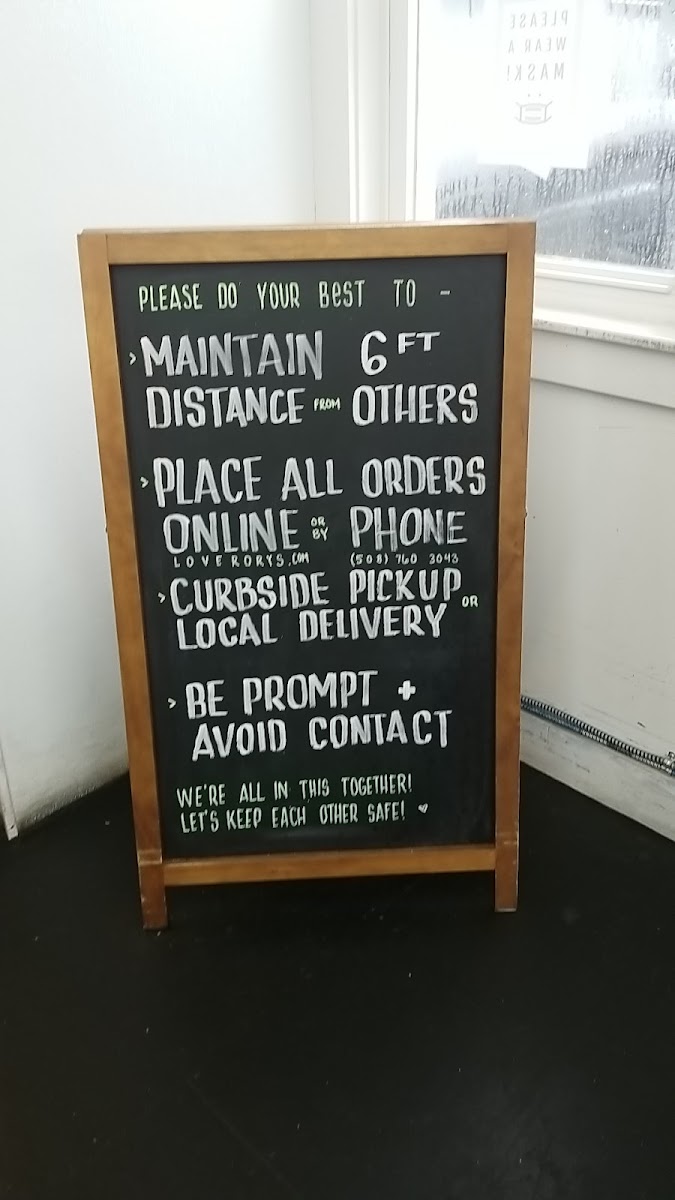 PLEASE
WEAR A
MASK!
PLEASE DO YOUR BEST TO -
> MAINTAIN 6 FT
DISTANCE FROM OTHERS
> PLACE ALL ORDERS
ONLINE OR BY PHONE
LOVERORYS.COM (508) 760 3043
> CURBSIDE PICKUP OR
LOCAL DELIVERY
> BE PROMPT +
AVOID CONTACT
WE'RE ALL IN THIS TOGETHER!
LET'S KEEP EACH OTHER SAFE! ♥